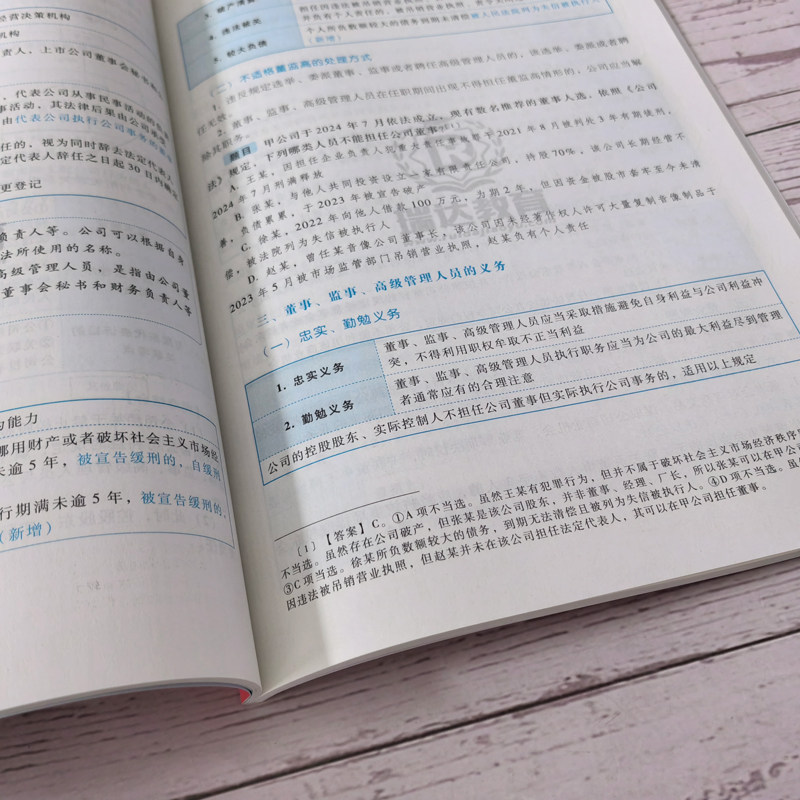 经营决策机构
机构
代表公司从事民事活动的
事活动，其法律后果由公司承
由代表公司执行公司事务的
任的，视为同时辞去法定代表人
定代表人辞任之日起 30 日内确定
更登记
负责人等。公司可以根据自
法所使用的名称。
高级管理人员，是指由公司董
董事会秘书和财务负责人等
的能力
挪用财产或者破坏社会主义市场经
未逾 5 年，被宣告缓刑的，自缓刑
行期满未逾 5 年，被宣告缓刑的，
（新增）
4. 违法被关
5. 较大负债
（新增）
（二）不适格董监高的处理方式
1. 违反规定选举、委派董事、监事或者聘任高级管理人员的，该选举、委派或者聘
任无效。
2. 董事、监事、高级管理人员在任职期间出现不得担任董监高情形的，公司应当解
除其职务。
题目 甲公司于 2024 年 7 月依法成立，现有数名推荐的董事人选，依照《公司
法》规定，下列哪类人员不能担任公司董事
A. 王某，因担任企业负责人犯重大责任事故罪于 2021 年 8 月被判处 3 年有期徒刑，
2024 年 7 月刑满释放
B. 张某，与他人共同投资设立一家有限责任公司，持股 70%，该公司长期经营不
善，负债累累，于 2023 年被宣告破产
C. 徐某，2022 年向他人借款 100 万元，为期 2 年，但因资金被股市套牢至今未清
偿，被法院列为失信被执行人
D. 赵某，曾任某音像公司董事长，该公司因未经著作权人许可大量复制音像制品于
2023 年 5 月被市场监管部门吊销营业执照，赵某负有个人责任
三、董事、监事、高级管理人员的义务
（一）忠实、勤勉义务
1. 忠实义务
董事、监事、高级管理人员应当采取措施避免自身利益与公司利益冲
突，不得利用职权牟取不正当利益
2. 勤勉义务
董事、监事、高级管理人员执行职务应当为公司的最大利益尽到管理
者通常应有的合理注意
公司的控股股东、实际控制人不担任公司董事但实际执行公司事务的，适用以上规定
（1）【答案】C。①A 项不当选。虽然王某有犯罪行为，但并不属于破坏社会主义市场经济秩序
不当选。虽然存在公司破产，但张某是该公司股东，并非董事、经理、厂长，所以张某可以在甲公
③C 项当选。徐某所负数额较大的债务，到期无法清偿且被列为失信被执行人。④D 项不当选。虽
因违法被吊销营业执照，但赵某并未在该公司担任法定代表人，其可以在甲公司担任董事。
瑞达教育